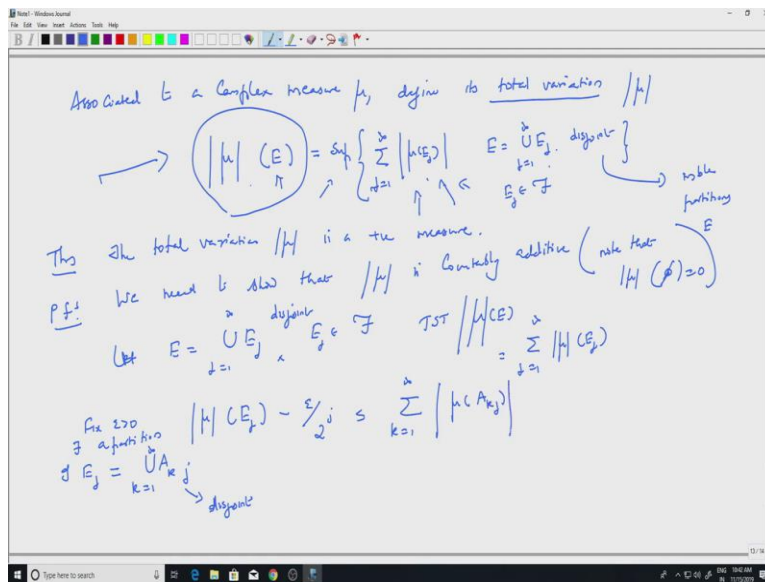 Note1 - Windows Journal
File Edit View Insert Actions Tools Help
Associated to a Complex measure μ, define its total variation |μ|
|μ| (E) = Sup { ∑_{j=1}^{∞} |μ(E_j)| E = ⋃_{j=1}^{∞} E_j. disjoint }
E_j ∈ F
→ mble partitions E
Thm The total variation |μ| is a +ve measure.
Pf: We need to show that |μ| is Countably additive (note that |μ| (φ) = 0)
Let E = ⋃_{j=1}^{∞} E_j, disjoint E_j ∈ F TST |μ|(E) = ∑_{j=1}^{∞} |μ| (E_j)
Fix ε>0 |μ| (E_j) - ε/2^j ≤ ∑_{k=1}^{∞} |μ(A_{kj})|
∃ a partition
of E_j = ⋃_{k=1}^{∞} A_{kj}
→ disjoint
13 / 14
Type here to search
ENG 10:42 AM
IN 11/15/2019